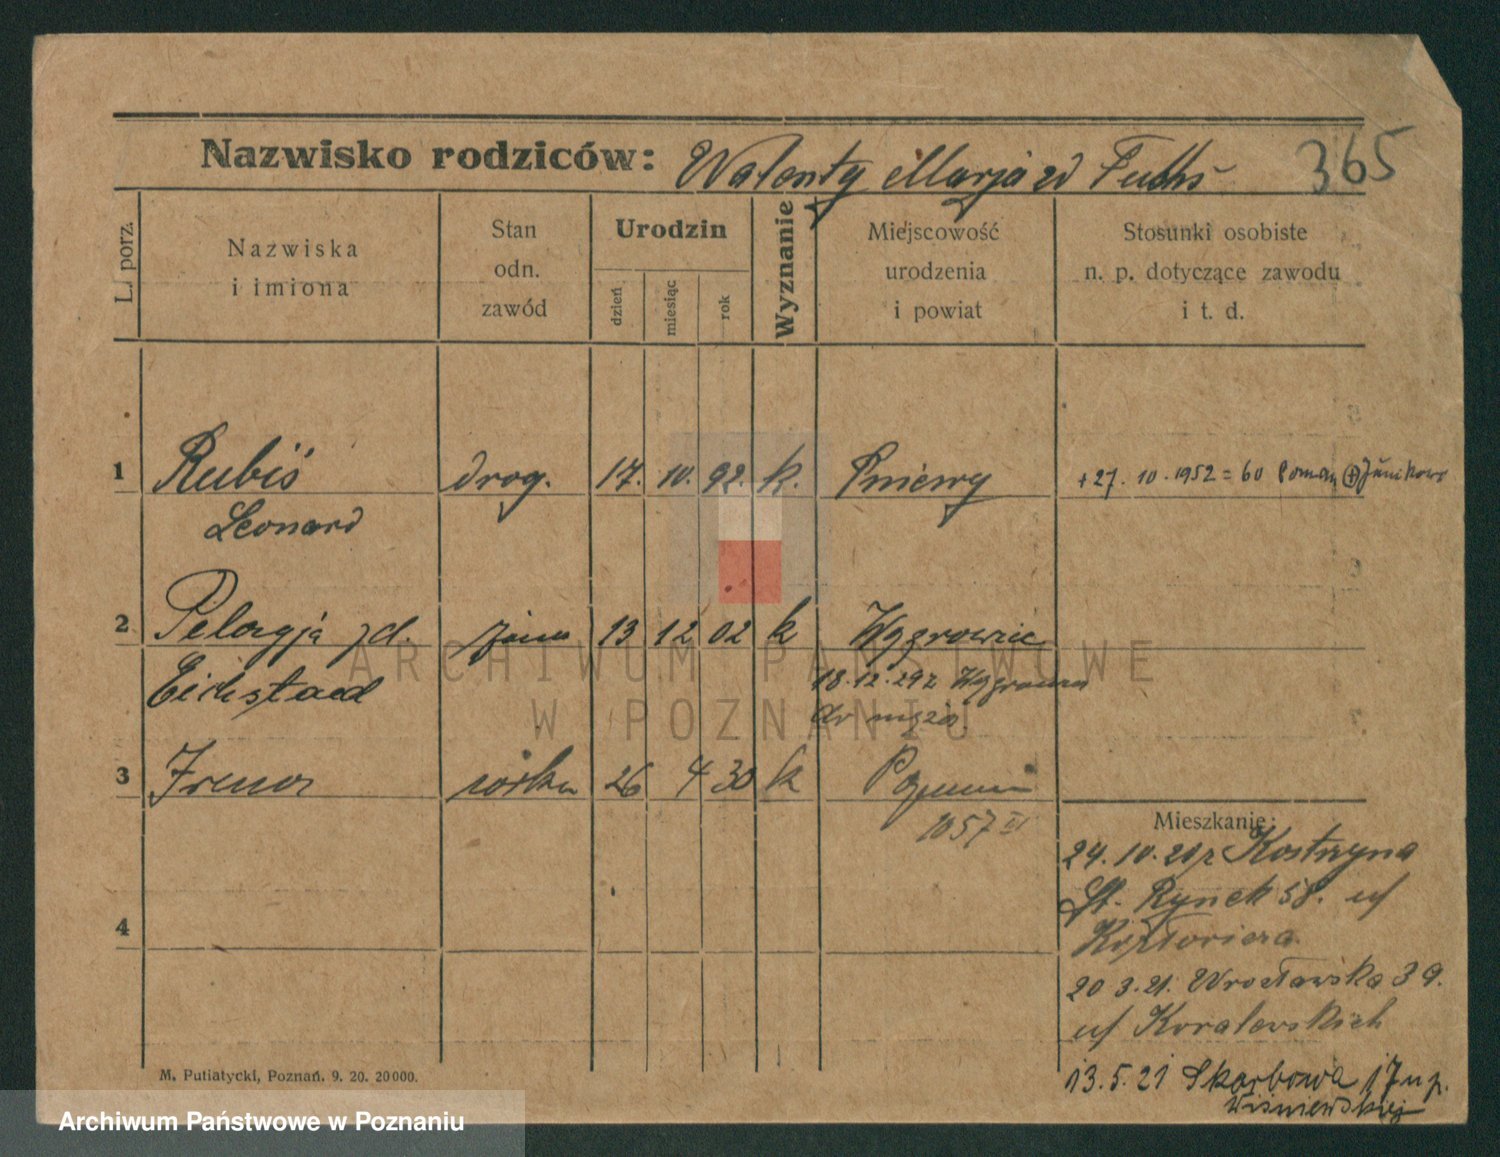 Nazwisko rodziców: Walenty Marja zd Fuchs
365
L. porz.
Nazwiska
i imiona
Stan
odn.
zawód
Urodzin
dzień
miesiąc
rok
Wyznanie
Miejscowość
urodzenia
i powiat
Stosunki osobiste
n. p. dotyczące zawodu
i t. d.
1 Rubiś drog. 17. 10. 92. k. Pniewy +27. 10. 1952 = 60 Junikowo
Leonard
2 Pelagja zd. żona 13 12 02 k
Eichstaed
18.12.29 z
do męża
3 Irena córka 26 4 30 k Poznań
1057 VI
Mieszkanie:
24. 10. 20 z Kostrzyna
St. Rynek 58. u/
4
20 3. 21. Wrocławska 39.
u/ Koralewskich
13. 5. 21 Skarbowa 17 u p.
Wiśniewskiej
M. Putiatycki, Poznań. 9. 20. 20000.
ARCHIWUM PAŃSTWOWE
W POZNANIU
Archiwum Państwowe w Poznaniu